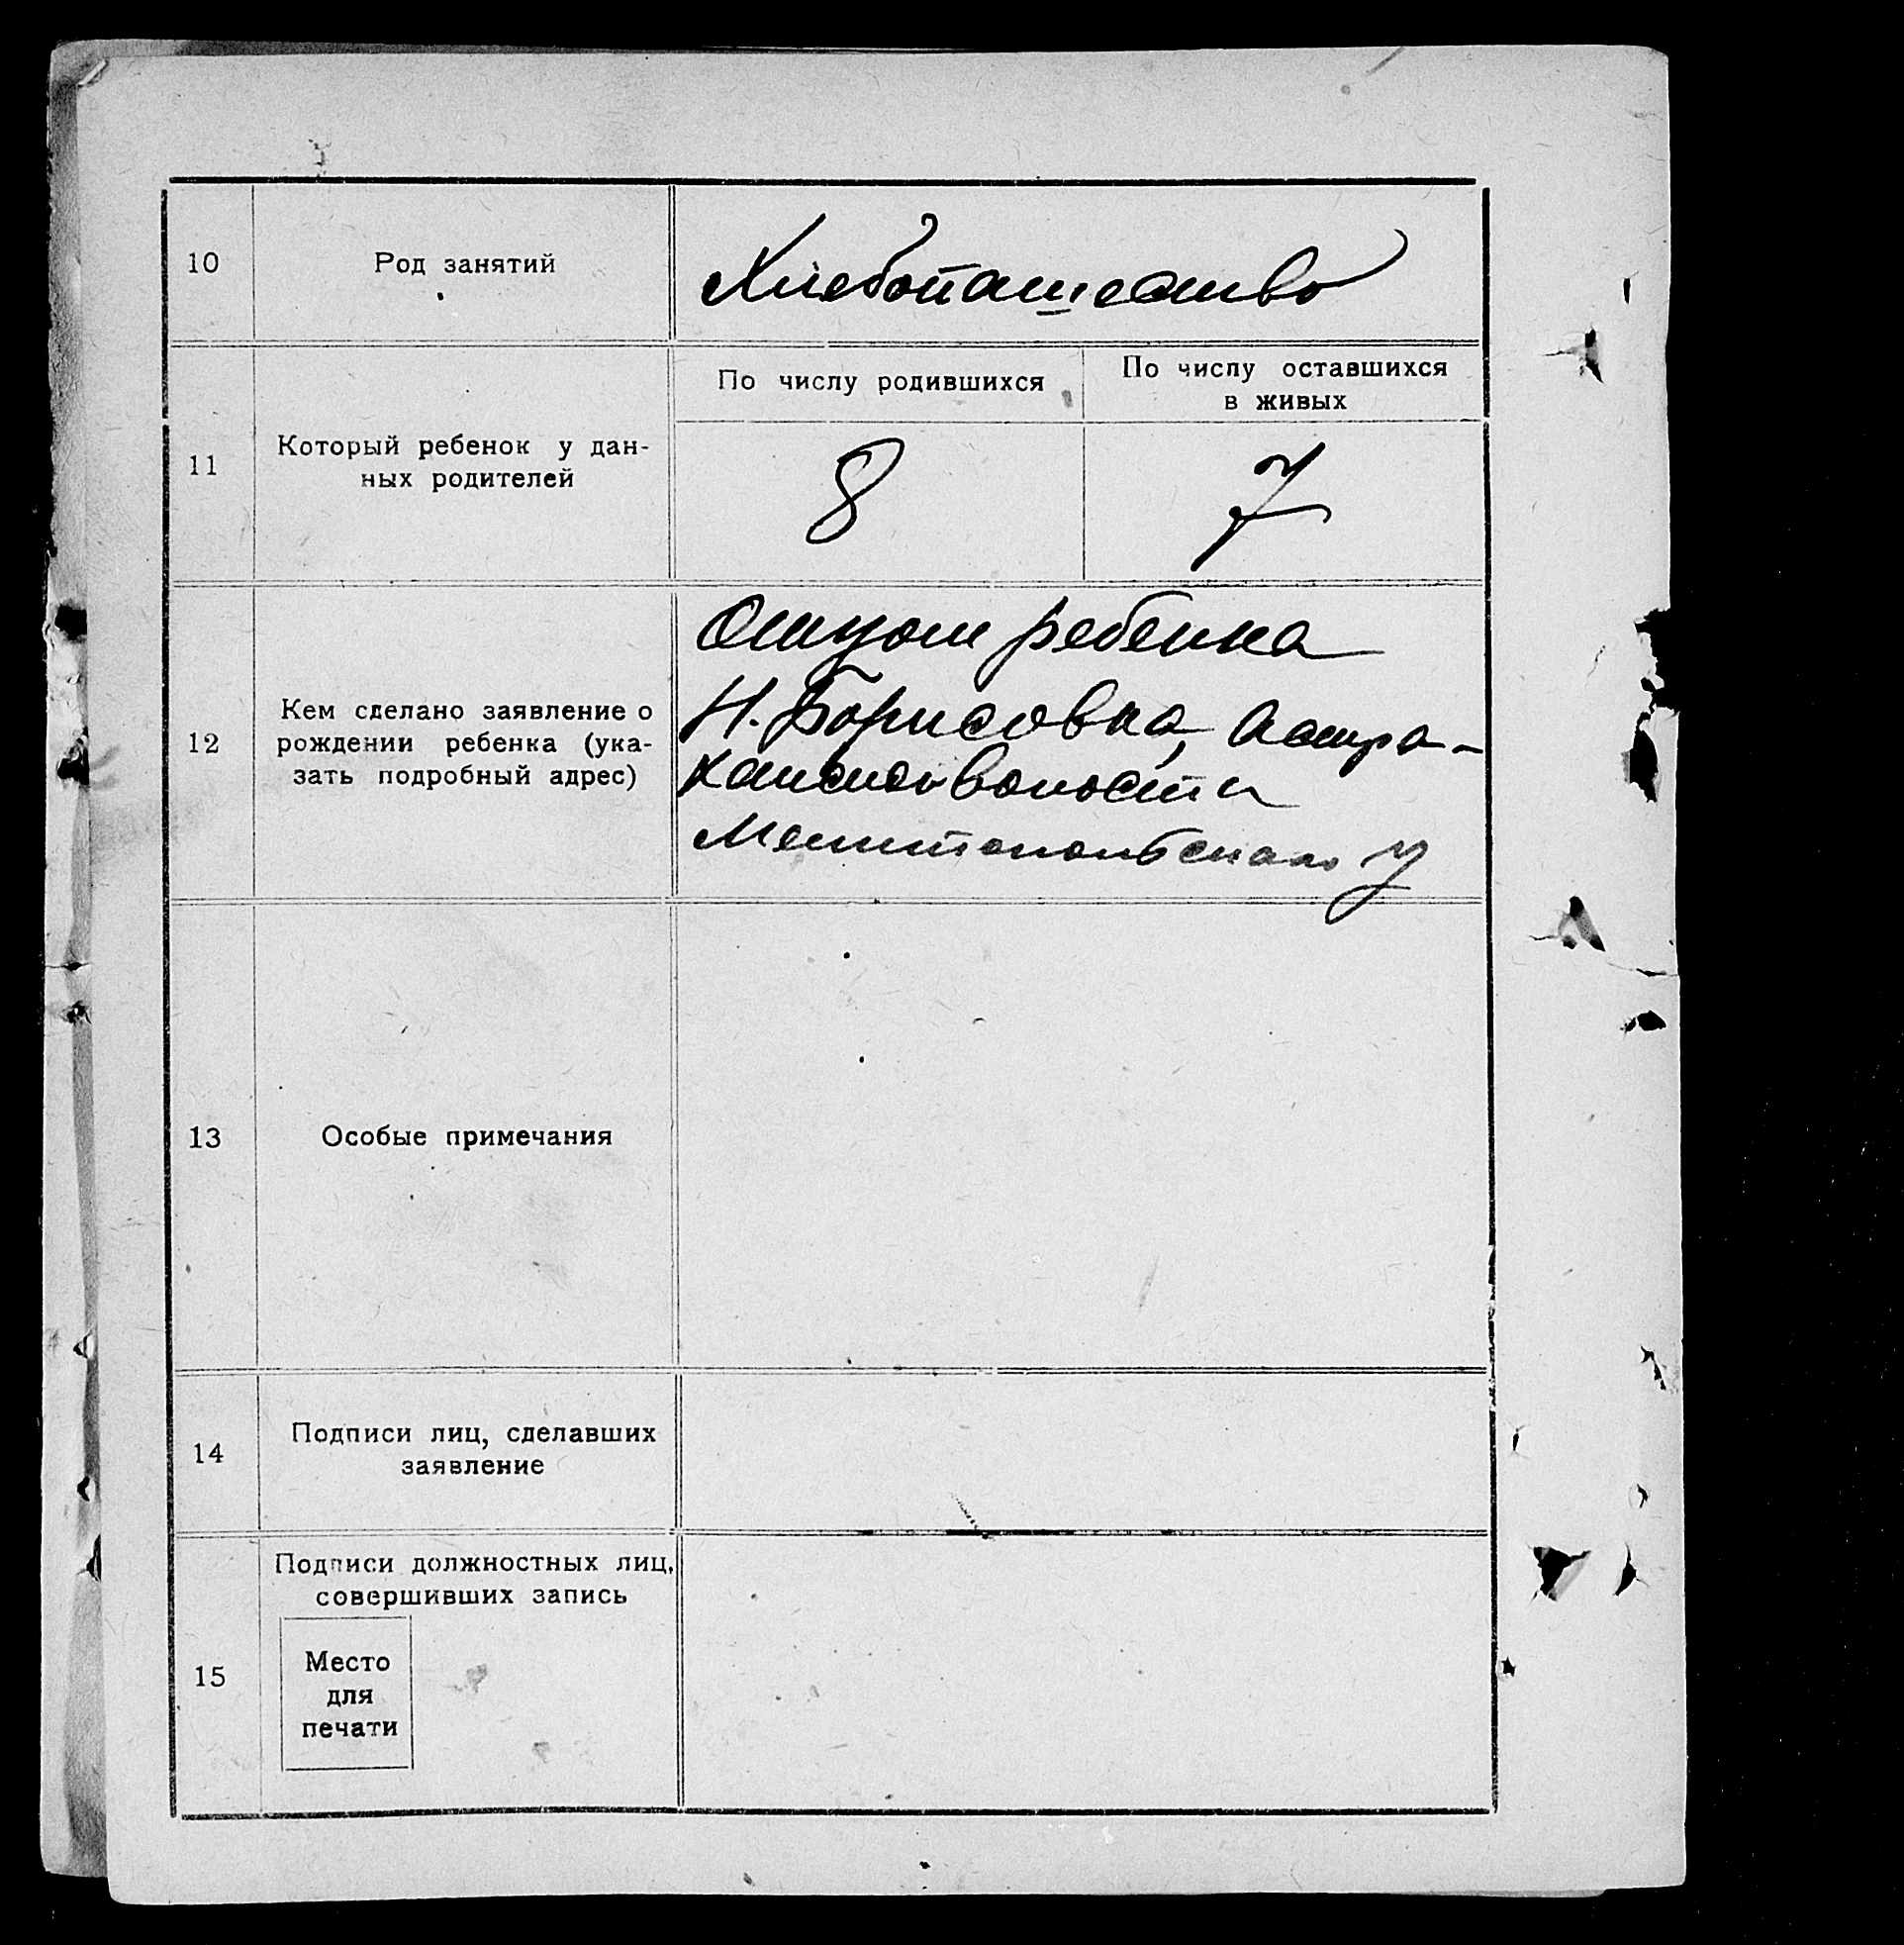 10
Род занятий
Хлебопашество
11
Который ребенок у дан-
ных родителей
По числу родившихся
По числу оставшихся
в живых
8
7
12
Кем сделано заявление о
рождении ребенка (ука-
зать подробный адрес)
Отцом ребенка
Н. Борисовка, Астра-
ханской волости
Мелитопольского у
13
Особые примечания
14
Подписи лиц, сделавших
заявление
15
Подписи должностных лиц,
совершивших запись
Место
для
печати